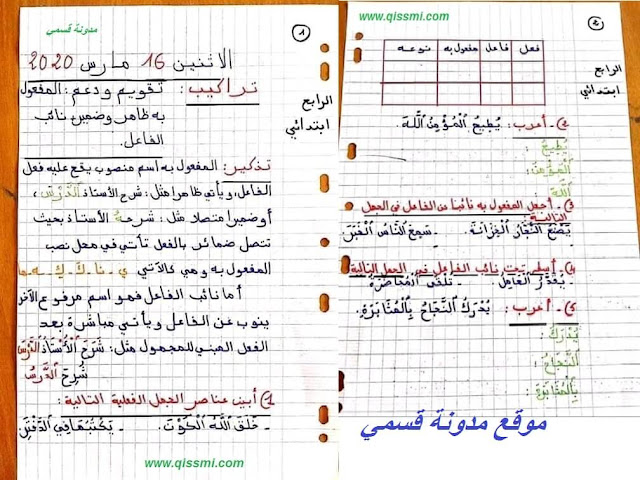 مدونة قسمي
1
الاثنين 16 مارس 2020
الرابع
ابتدائي
تراكيب: تقويم ودعم: المفعول
به ظاهر وضمير، نائب
الفاعل.
تذكير: المفعول به اسم منصوب يقع عليه فعل
الفاعل، ويأتي ظاهرا مثل: شرح الأستاذ الدَّرْسَ،
أو ضميرا متصلا مثل: شرحهُ الأستاذ بحيث
تتصل ضمائر بالفعل تأتي في محل نصب
المفعول به وهي كالآتي ي - نا - ك - كِ - ه - ها
أما نائب الفاعل فهو اسم مرفوع الآخر
ينوب عن الفاعل ويأتي مباشرة بعد
الفعل المبني للمجهول مثل: شَرَحَ الْأُسْتَاذُ الدَّرْسَ
شُرِحَ الدَّرْسُ
1) أبين عناصر الجمل الفعلية التالية:
- خَلَقَ اللَّهُ الْكَوْنَ. - يَكْتُبُهَا فِي الدَّفْتَرِ
www.qissmi.com
www.qissmi.com
2
فعل فاعل مفعول به نوعه
الرابع
ابتدائي
2) - أعرب: يُطِيعُ الْمُؤْمِنُ اللَّهَ.
يُطِيعُ:
الْمُؤْمِنُ:
اللَّهَ:
3) - أجعل المفعول به نائبا عن الفاعل في الجمل
التالية:
يَصْنَعُ النَّجَّارُ الْخِزَانَةَ. - سَمِعَ النَّاسُ الْخَبَرَ
4) - أسطر تحت نائب الفاعل في الجمل التالية
- يُقَدَّرُ الْعَامِلُ. - تُلْقَى الْمُحَاضَرَةُ
5) - أعرب: يُدْرَكُ النَّجَاحُ بِالْمُثَابَرَةِ.
يُدْرَكُ:
النَّجَاحُ:
بِالْمُثَابَرَةِ:
موقع مدونة قسمي